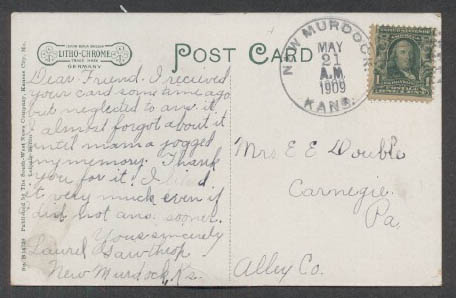 LITHO-CHROME
TRADE MARK
GERMANY
POST CARD
NEW MURDOCK
MAY
21
A.M.
1909
KANS.
Dear Friend. I received
your card some time ago
but neglected to ans. it
I almost forgot about it
until mama jogged
my memory. Thank
you for it! I liked
it very much even if
did not ans. sooner.
Yours sincerely
Laurel Hawthop
New Murdock, Ks.
Mrs E E Double
Carnegie.
Pa.
Alley Co.
Published by The South-West News Company, Kansas City, Mo.